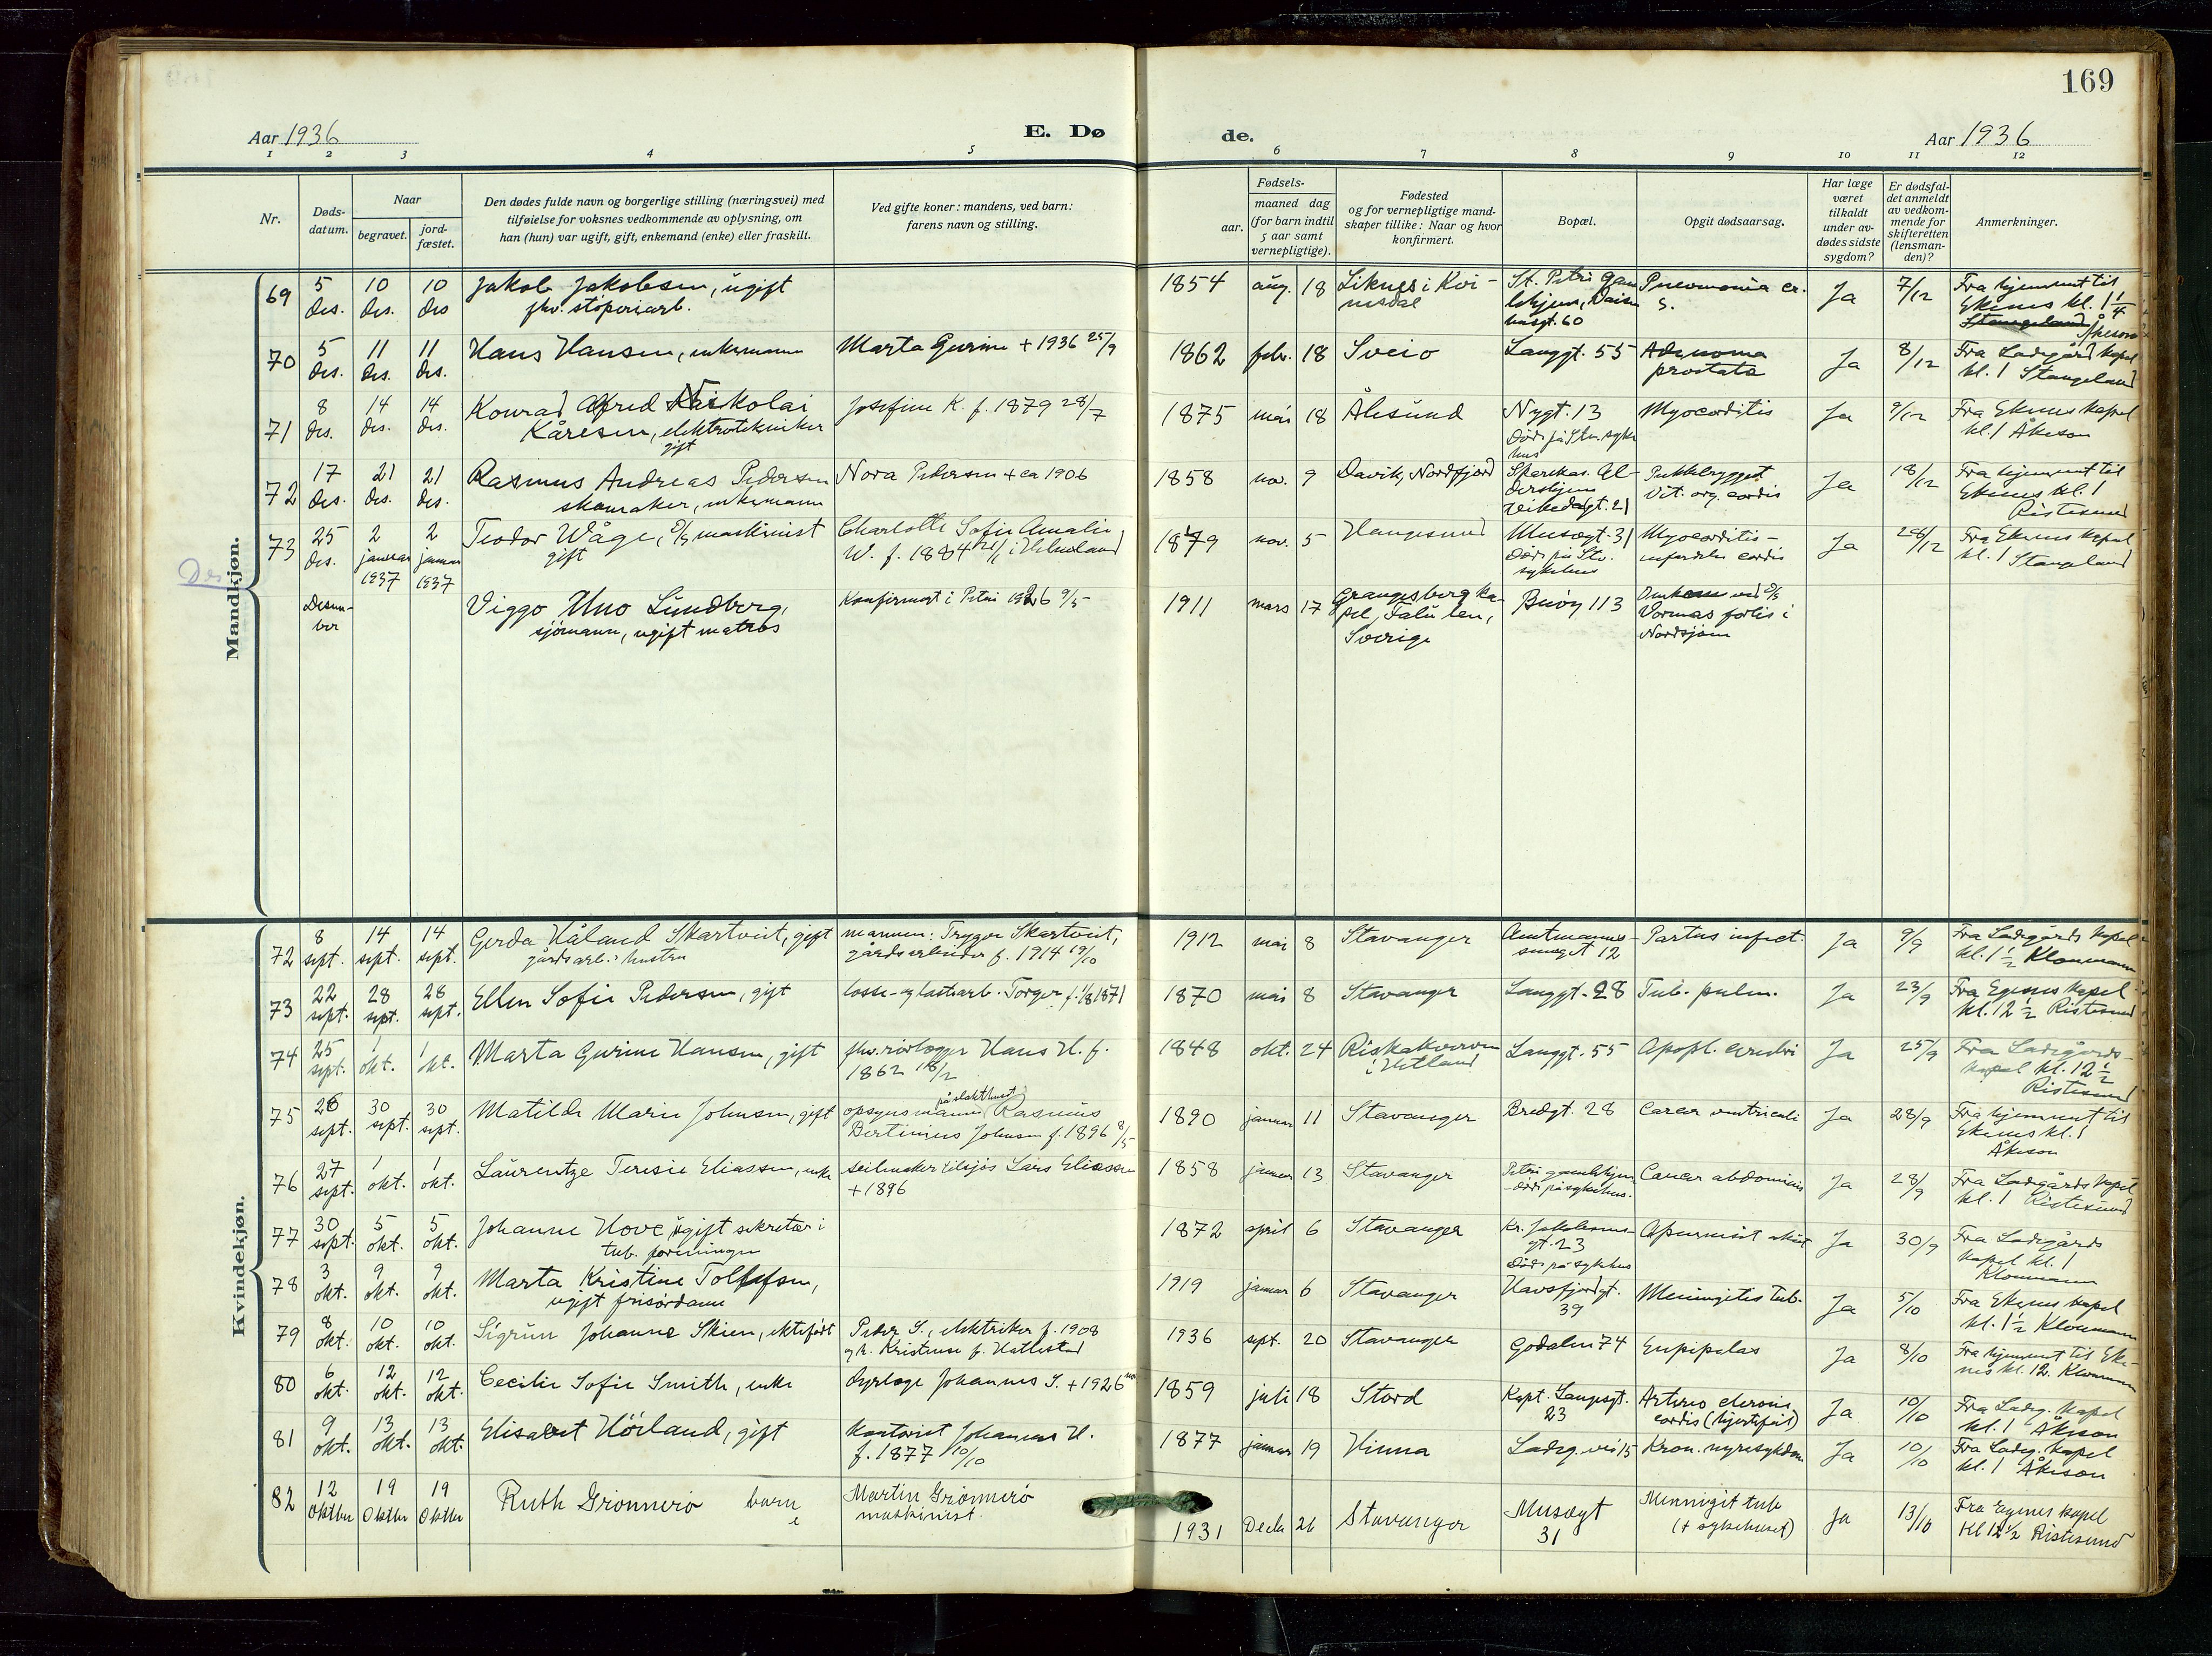 169
Aar 1936
E. Dø
de.
Aar 1936
1 2 3 4 5 6 7 8 9 10 11 12
Nr.
Døds-
datum.
Naar
begravet.
jord-
fæstet.
Den dødes fulde navn og borgerlige stilling (næringsvei) med
tilføielse for voksnes vedkommende av oplysning, om
han (hun) var ugift, gift, enkemand (enke) eller fraskilt.
Ved gifte koner: mandens, ved barn:
farens navn og stilling.
Fødsels-
aar.
maaned dag
(for barn indtil
5 aar samt
vernepligtige).
Fødested
og for vernepligtige mand-
skaper tillike: Naar og hvor
konfirmert.
Bopæl.
Opgit dødsaarsag.
Har læge
været
tilkaldt
under av-
dødes sidste
sygdom?
Er dødsfal-
det anmeldt
av vedkom-
mende for
skifteretten
(lensman-
den)?
Anmerkninger.
Mandkjøn.
69 5 des. 10 des. 10 des Jakob Jakobsen, ugift
fhv. støperiarb.
1854 aug. 18 Liknes i Kvi-
nesdal
St. Petri Gam
lehjem,
60
Pneumonia cr.
s.
Ja 7/12 Fra hjemmet til
Ekenes kl. 1 1/4
Stangeland Åkeson
70 5 des. 11 des. 11 des. Hans Hansen, enkemann
Marta Gurine + 1936 25/9
1862 febr. 18 Sveio Langgt. 55 Adenoma
prostata
Ja 8/12 Fra Ladegård kapel
kl. 1 Stangeland
71 8 des. 14 des. 14 des. Konrad Alfred Nikolai
Kåresen, elektrotekniker
gift
Josefine K. f. 1879 28/7
1875 mai 18 Ålesund Nygt. 13
Død på Stv. syke
hus
Myocarditis Ja 9/12 Fra Ekenes kapel
kl. 1 Åkeson
72 17 des. 21 des. 21 des. Rasmus Andreas Pedersen
skomaker, enkemann
Nora Pedersen + ca 1906
1858 nov. 9 Davik, Nordfjord Sparekas. Al-
dershjem
Vikedalgt. 21
Prikkebrygget
Vit. org. cordis
Ja 18/12 Fra hjemmet til
Ekenes kl. 1
Ristesund
73 25 des. 2 januar 1937 2 januar 1937 Teodor Wåge, D/S maskinist
gift
Charlotte Sofie Amalie
W. f. 1884 21/1 i Helneland
1879 nov. 5 Haugesund Musegt. 31
Død på Stv.
sykehus
Myocarditis -
infarcktus cordis
Ja 28/12 Fra Ekenes kapel
kl. 1 Stangeland
Desem-
ber
Viggo Uno Lundberg,
sjømann, ugift matros
Konfirmert i Petri 1926 9/5
1911 mars 17 Grangesberg ka-
pel, Falu len,
Sverige
Buøy 113
Omkom ved D/S
Vormas forlis i
Nordsjøen
Kvindekjøn.
72 8 sept. 14 sept. 14 sept. Gerda Håland Skartveit, gift
gårdsarb.s hustru
mannen: Trygve Skartveit,
gårdsarbeider f. 1914 19/10
1912 mai 8 Stavanger Amtmannes-
smuget 12
Partus infect. Ja 9/9 Fra Ladegårds kapel
kl. 1 1/2 Kloumann
73 22 sept. 28 sept. 28 sept. Ellen Sofie Pedersen, gift
losse- og lastearb. Torger f. 1/8 1871
1870 mai 8 Stavanger Langgt. 28 Tub. pulm. Ja 23/9 Fra Egenes kapel
kl. 12 1/2 Ristesund
74 25 sept. 1 okt. 1 okt. Marta Gurine Hansen, gift
fhv. rørlegger Hans H. f.
1862 18/2
1848 okt. 24 Riskakverven
i Hetland
Langgt. 55 Apopl. cerebri Ja 25/9 Fra Ladegårds-
kapel kl. 12 1/2
Ristesund
75 26 sept. 30 sept. 30 sept. Matilde Marie Johnsen, gift
på slakthuset
opsynsmann Rasmus
Bertinius Johnsen f. 1896 8/5
1890 januar 11 Stavanger Bredgt. 28 Cancer ventriculi Ja 28/9 Fra hjemmet til
Ekenes kl. 1
Åkeson
76 27 sept. 1 okt. 1 okt. Laurentze Teresie Eliassen, enke
seilmaker tilsjøs Lars Eliassen
+ 1896
1858 januar 13 Stavanger Petri gamlehjem
- død på sykehus.
Cancer abdominis Ja 28/9 Fra Ladegårds kapel
kl. 1 Ristesund
77 30 sept. 5 okt. 5 okt. Johanne Hove, ugift sekretær i
tub. foreningen
1872 april 6 Stavanger Kr. Jakobsens-
gt. 23
Død på sykehus
Ja 30/9 Fra Ladegårds
kapel kl. 1
Kloumann
78 3 okt. 9 okt. 9 okt. Marta Kristine Tollefsen,
ugift frisørdame
1919 januar 6 Stavanger Havsfjordgt.
39
Meningitis tub. Ja 5/10 Fra Ekenes kapel
kl. 1 1/2 Kloumann
79 8 okt. 10 okt. 10 okt. Sigrun Johanne Skien, ektefødt
Peder S., elektriker f. 1908
og h. Kristense f. Hattestad
1936 sept. 20 Stavanger Godalen 74 Erysipelas Ja 8/10 Fra hjemmet til Eke-
nes kl. 12. Kloumann
80 6 okt. 12 okt. 12 okt. Cecilie Sofie Smith, enke
dyrlæge Johannes S. + 1926
1859 juli 18 Stord Kapt. Langesgt.
23
Arterio sclerosis
cordis (hjertefeil)
Ja 10/10 Fra Ladeg. kapel
kl. 1 Åkeson
81 9 okt. 13 okt. 13 okt. Elisabet Hörland, gift
kontorist Johannes H.
f. 1877 10/10
1877 januar 19 Hinna Ladeg. vei 15 Kron. nyresykdom Ja 10/10 Fra Ladeg. kapel
kl. 1 Åkeson
82 12 Oktber 19 Oktber 19 Oktber Ruth Grønnerø barn
e
Martin Grönnerö
maskinist.
1931 Decbr 26 Stavanger Musegt
31
Mennigit tub
(+ sykehuset)
Ja 13/10 Fra Egenes kapel
Kl 12 1/2 Ristesund